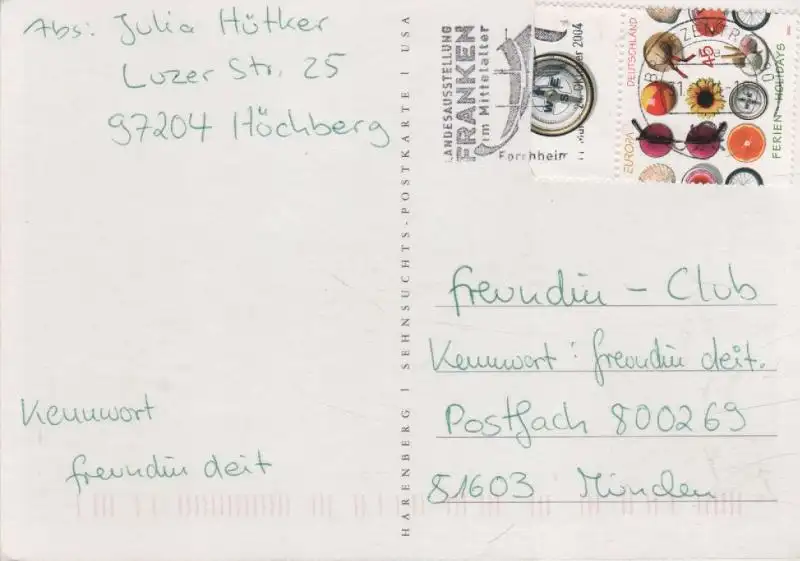 Abs: Julia Hütker
Luzer Str. 25
97204 Höchberg
Kennwort
freundin deit
HARENBERG | SEHNSUCHTS-POSTKARTE | USA
LANDESAUSSTELLUNG
FRANKEN
im Mittelalter
Forchheim
Oktober 2004
DEUTSCHLAND
45
EUROPA
FERIEN · HOLIDAYS
freundin - Club
Kennwort: freundin deit.
Postfach 800269
81603 München